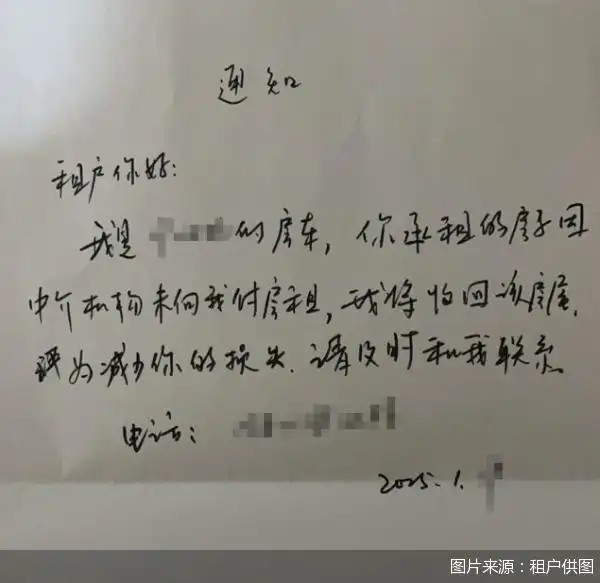 通知
租户你好:
我是 的房东, 你承租的房子因
中介机构未向我付房租, 我将收回该房屋.
为减少你的损失. 请及时和我联系
电话:
2025.1.
图片来源：租户供图